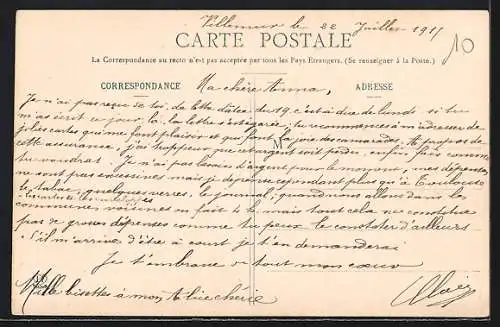 Villemur le 22 Juillet 1911
10
CARTE POSTALE
La Correspondance au recto n'est pas acceptée par tous les Pays Etrangers. (Se renseigner à la Poste.)
CORRESPONDANCE
Ma chère Anna,
ADRESSE
Je n'ai pas reçu de toi de lettre datée du 19 c'est à dire de lundi si tu
m'as écrit ce jour là la lettre s'est égarée; tu recommences à m'adresser de
jolies cartes qui me font plaisir et qui font la joie des camarades. A propos de
cette assurance, j'ai peur que cet argent soit perdu, enfin fais comme
tu voudras. Je n'ai pas besoin d'argent pour le moment, mes dépenses
ne sont pas excessives mais je dépense cependant plus qu'à Toulouse
le tabac, quelques verres, le journal, quand nous allons dans les
communes voisines
tout cela ne constitue
pas de grosses dépenses comme tu peux le constater d'ailleurs
s'il m'arrive d'être à court je t'en demanderai
Je t'embrasse de tout mon cœur
Mille bisettes à mon Alice chérie